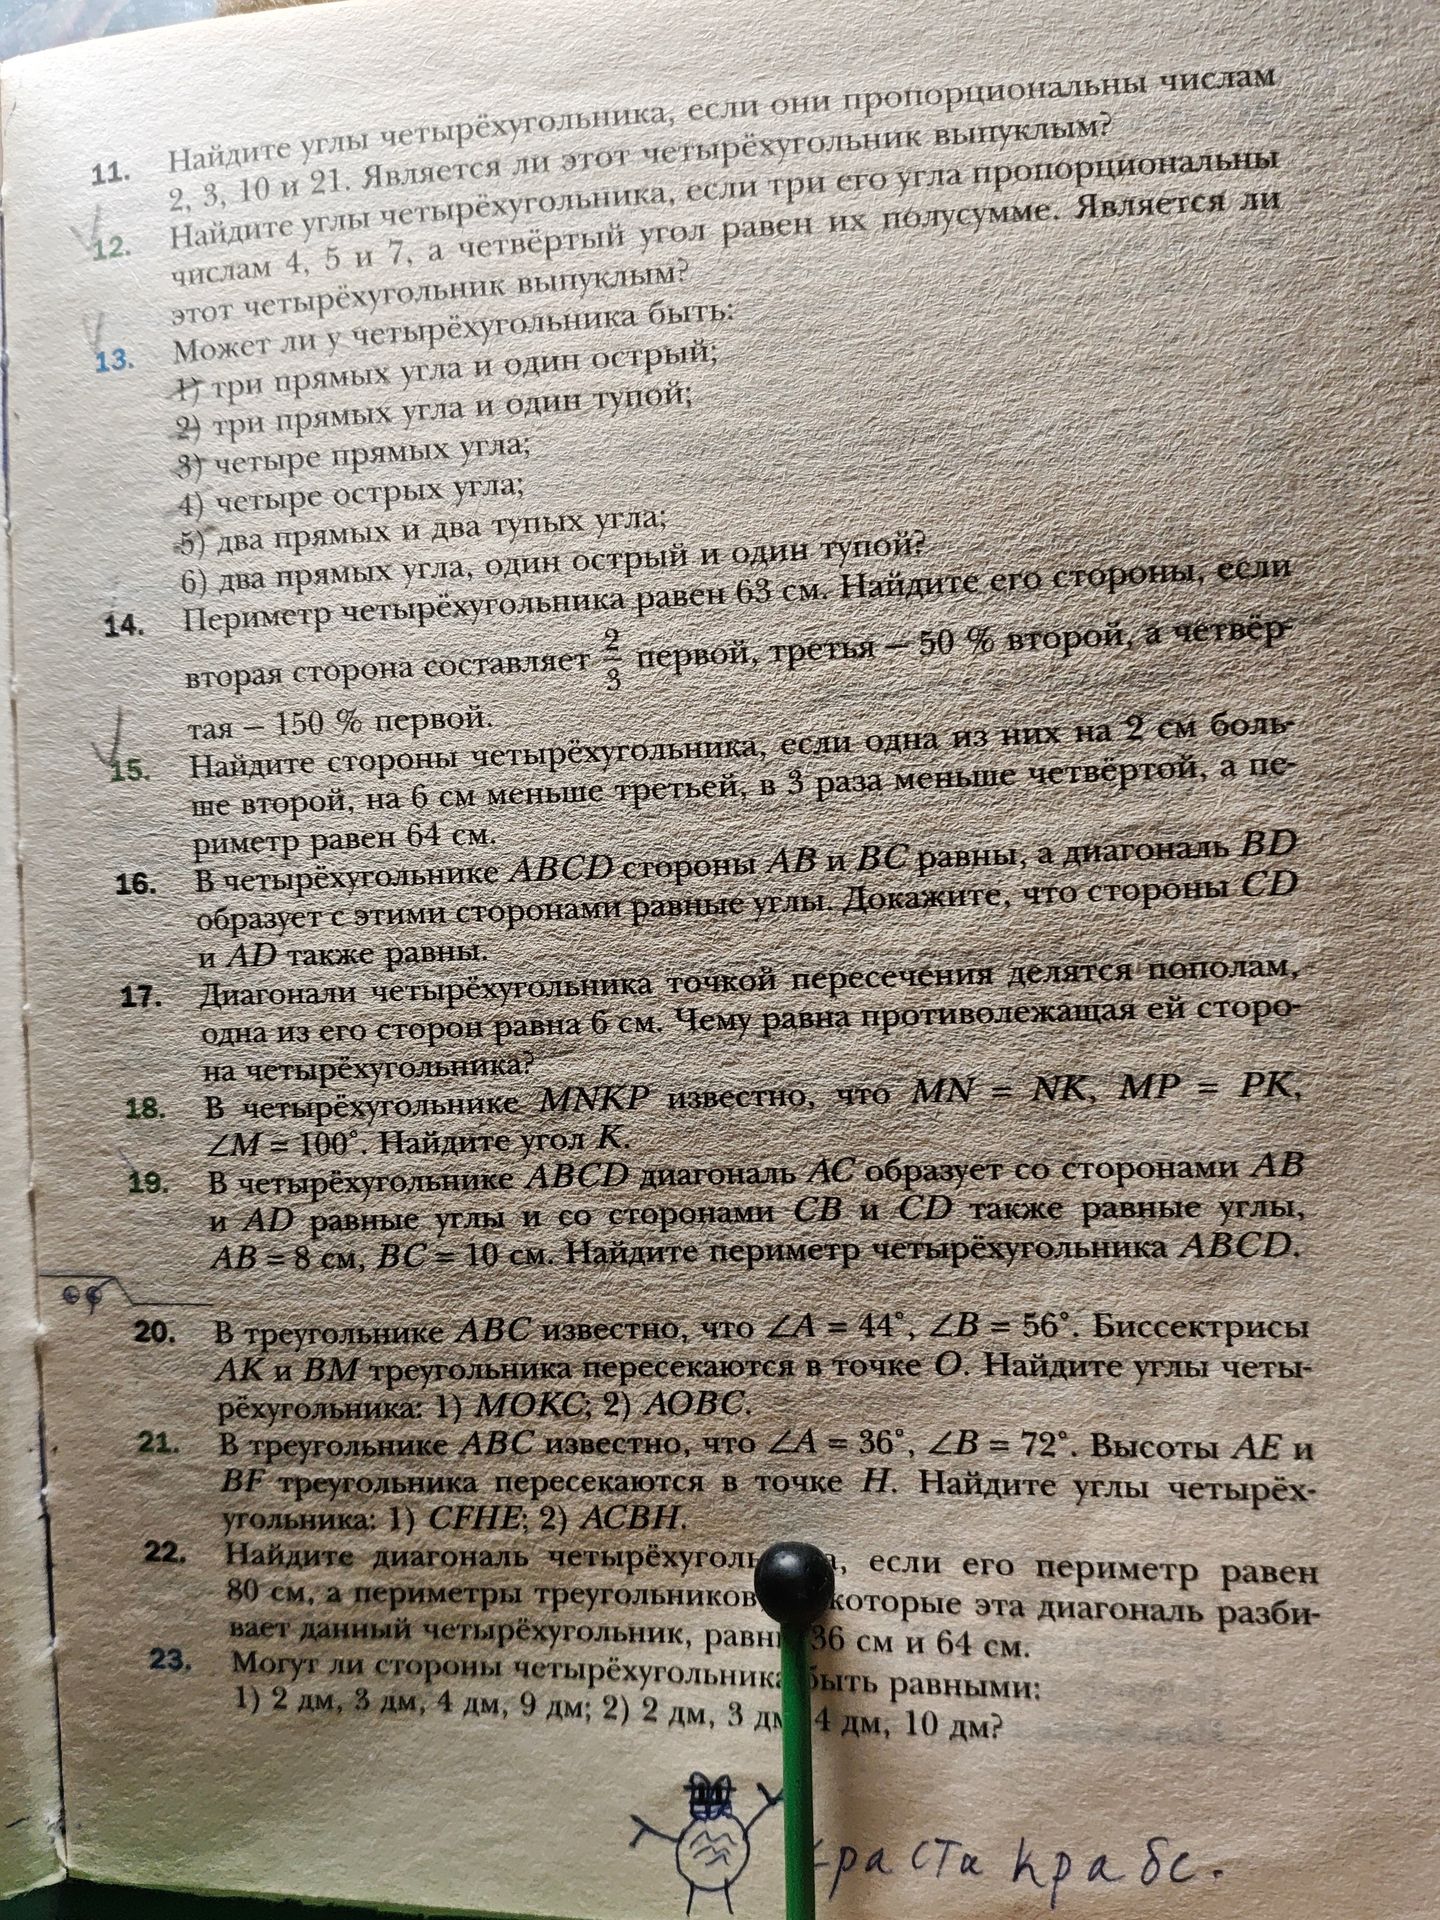 11. Найдите углы четырёхугольника, если они пропорциональны числам
2, 3, 10 и 21. Является ли этот четырёхугольник выпуклым?
12. Найдите углы четырёхугольника, если три его угла пропорциональны
числам 4, 5 и 7, а четвёртый угол равен их полусумме. Является ли
этот четырёхугольник выпуклым?
13. Может ли у четырёхугольника быть:
1) три прямых угла и один острый;
2) три прямых угла и один тупой;
3) четыре прямых угла;
4) четыре острых угла;
5) два прямых и два тупых угла;
6) два прямых угла, один острый и один тупой?
14. Периметр четырёхугольника равен 63 см. Найдите его стороны, если
вторая сторона составляет 2/3 первой, третья – 50 % второй, а четвёр-
тая – 150 % первой.
15. Найдите стороны четырёхугольника, если одна из них на 2 см боль-
ше второй, на 6 см меньше третьей, в 3 раза меньше четвёртой, а пе-
риметр равен 64 см.
16. В четырёхугольнике ABCD стороны AB и BC равны, а диагональ BD
образует с этими сторонами равные углы. Докажите, что стороны CD
и AD также равны.
17. Диагонали четырёхугольника точкой пересечения делятся пополам,
одна из его сторон равна 6 см. Чему равна противолежащая ей сторо-
на четырёхугольника?
18. В четырёхугольнике MNKP известно, что MN = NK, MP = PK,
∠M = 100°. Найдите угол K.
19. В четырёхугольнике ABCD диагональ AC образует со сторонами AB
и AD равные углы и со сторонами CB и CD также равные углы,
AB = 8 см, BC = 10 см. Найдите периметр четырёхугольника ABCD.
20. В треугольнике ABC известно, что ∠A = 44°, ∠B = 56°. Биссектрисы
AK и BM треугольника пересекаются в точке O. Найдите углы четы-
рёхугольника: 1) MOKC; 2) AOBC.
21. В треугольнике ABC известно, что ∠A = 36°, ∠B = 72°. Высоты AE и
BF треугольника пересекаются в точке H. Найдите углы четырёх-
угольника: 1) CFHE; 2) ACBH.
22. Найдите диагональ четырёхуголь а, если его периметр равен
80 см, а периметры треугольников, которые эта диагональ разби-
вает данный четырёхугольник, равны 36 см и 64 см.
23. Могут ли стороны четырёхугольника быть равными:
1) 2 дм, 3 дм, 4 дм, 9 дм; 2) 2 дм, 3 дм, 4 дм, 10 дм?
краста крабс.